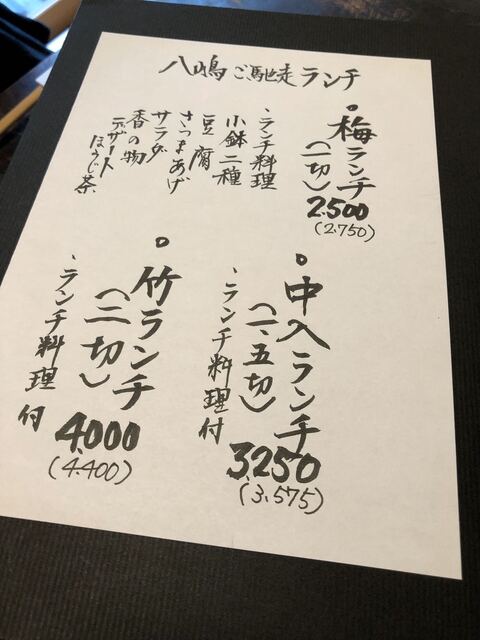 八嶋ご馳走ランチ
。梅ランチ
(一切)
2.500
(2.750)
、ランチ料理
小鉢二種
豆腐
さつまあげ
サラダ
香の物
デザート
ほうじ茶
。中入ランチ
(一、五切)
3.250
(3.575)
、ランチ料理付
。竹ランチ
(二切)
4.000
(4.400)
、ランチ料理付